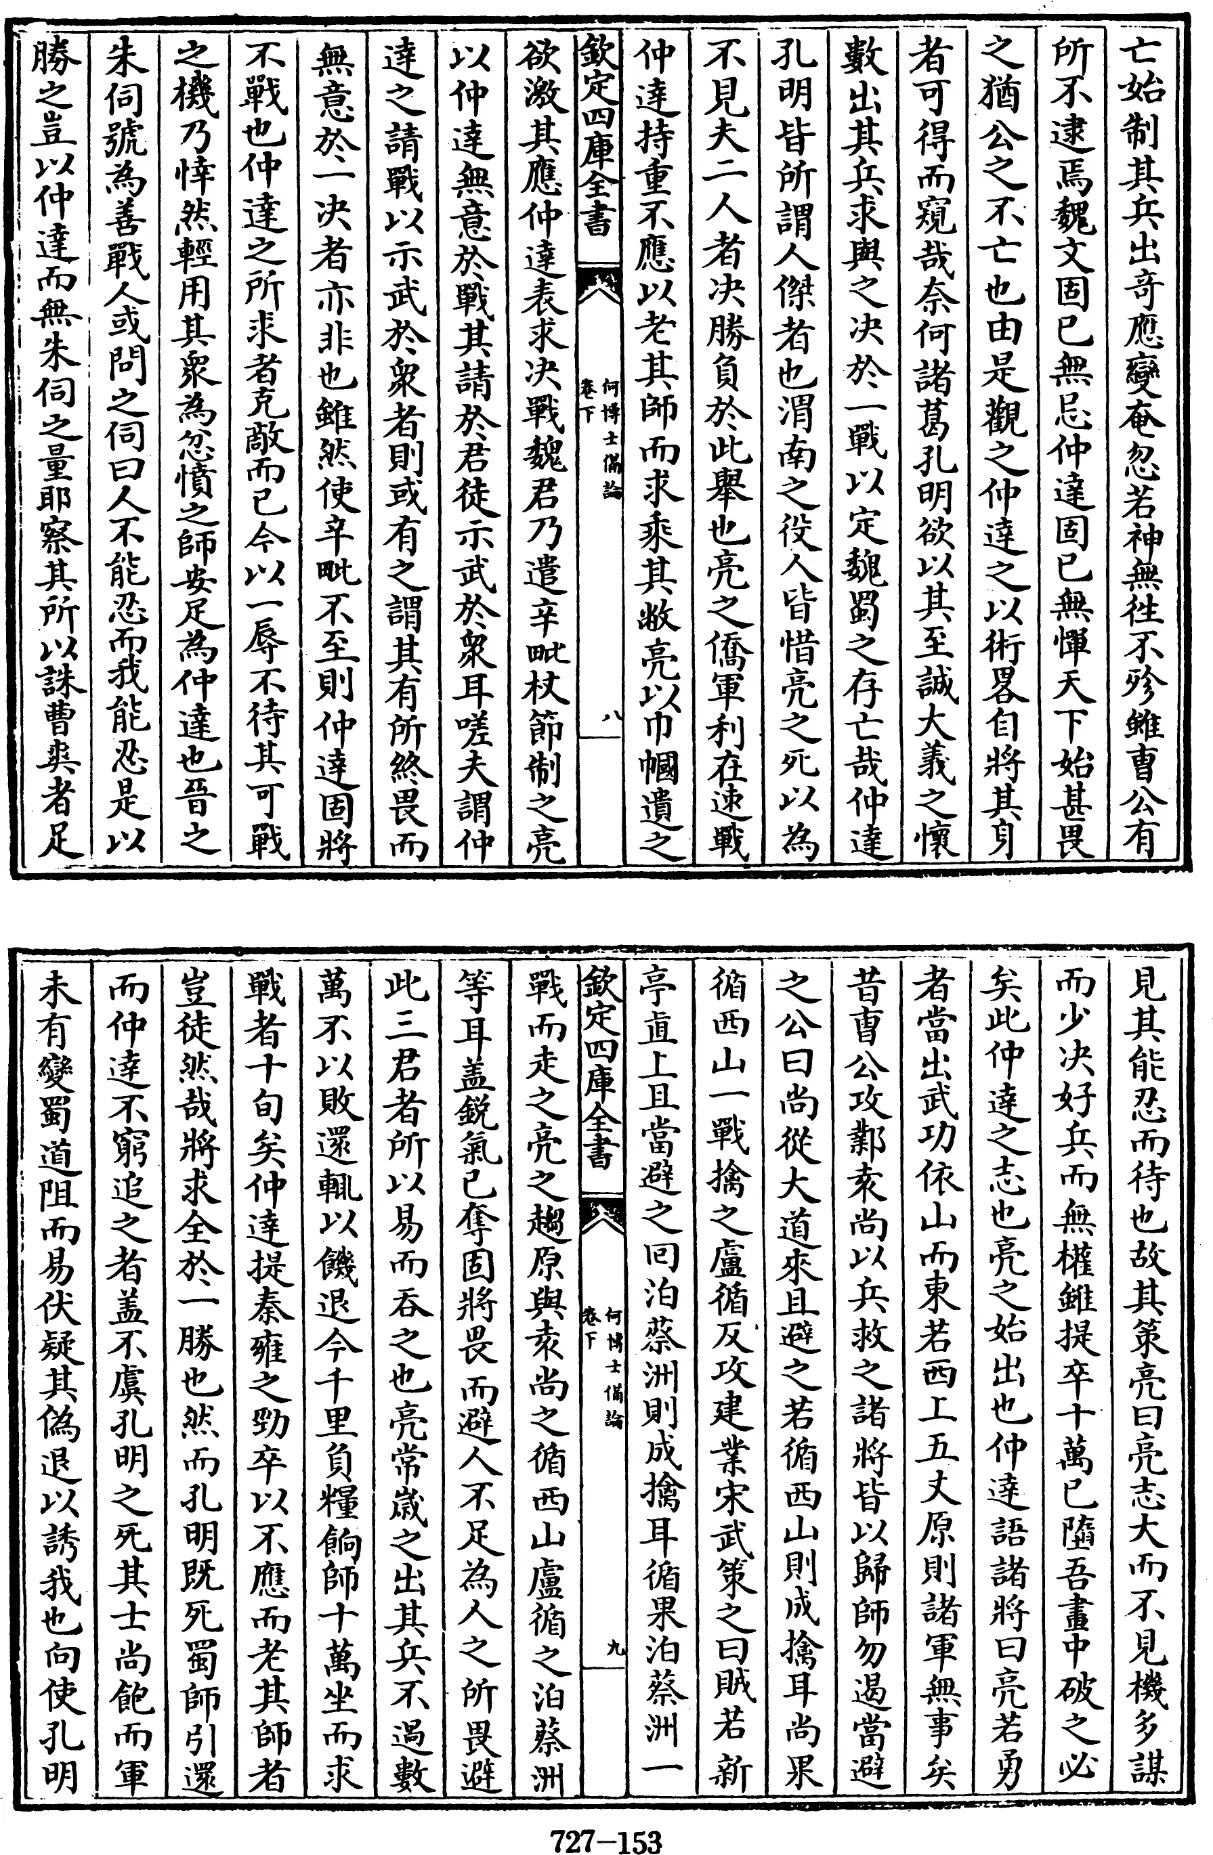 亡始制其兵出竒應變奄忽若神無徃不殄雖曹公有
所不逮焉魏文固已無忌仲達固已無憚天下始甚畏
之猶公之不亡也由是觀之仲達之以術畧自將其身
者可得而窺哉奈何諸葛孔明欲以其至誠大義之懷
數出其兵求與之决於一戰以定魏蜀之存亡哉仲達
孔明皆所謂人傑者也渭南之役人皆惜亮之死以為
不見夫二人者决勝負於此舉也亮之僑軍利在速戰
仲達持重不應以老其師而求乘其敝亮以巾幗遺之
欽定四庫全書
何博士備論
卷下
八
欲激其應仲達表求决戰魏君乃遣辛毗杖節制之亮
以仲達無意於戰其請於君徒示武於衆耳嗟夫謂仲
達之請戰以示武於衆者則或有之謂其有所終畏而
無意於一决者亦非也雖然使辛毗不至則仲達固將
不戰也仲達之所求者克敵而已今以一辱不待其可戰
之機乃悻然輕用其衆為忿憤之師安足為仲達也晉之
朱伺號為善戰人或問之伺曰人不能忍而我能忍是以
勝之豈以仲達而無朱伺之量耶察其所以誅曹爽者足
見其能忍而待也故其策亮曰亮志大而不見機多謀
而少决好兵而無權雖提卒十萬已墮吾畫中破之必
矣此仲達之志也亮之始出也仲達語諸將曰亮若勇
者當出武功依山而東若西上五丈原則諸軍無事矣
昔曹公攻鄴袁尚以兵救之諸將皆以歸師勿遏當避
之公曰尚從大道來且避之若循西山則成擒耳尚果
循西山一戰擒之盧循反攻建業宋武策之曰賊若新
亭直上且當避之囘泊蔡洲則成擒耳循果泊蔡洲一
欽定四庫全書
何博士備論
卷下
九
戰而走之亮之趨原與袁尚之循西山盧循之泊蔡洲
等耳盖鋭氣已奪固將畏而避人不足為人之所畏避
此三君者所以易而吞之也亮常歲之出其兵不過數
萬不以敗還輒以饑退今千里負糧餉師十萬坐而求
戰者十旬矣仲達提秦雍之勁卒以不應而老其師者
豈徒然哉將求全於一勝也然而孔明既死蜀師引還
而仲達不窮追之者盖不虞孔明之死其士尚飽而軍
未有變蜀道阻而易伏疑其偽退以誘我也向使孔明
727-153